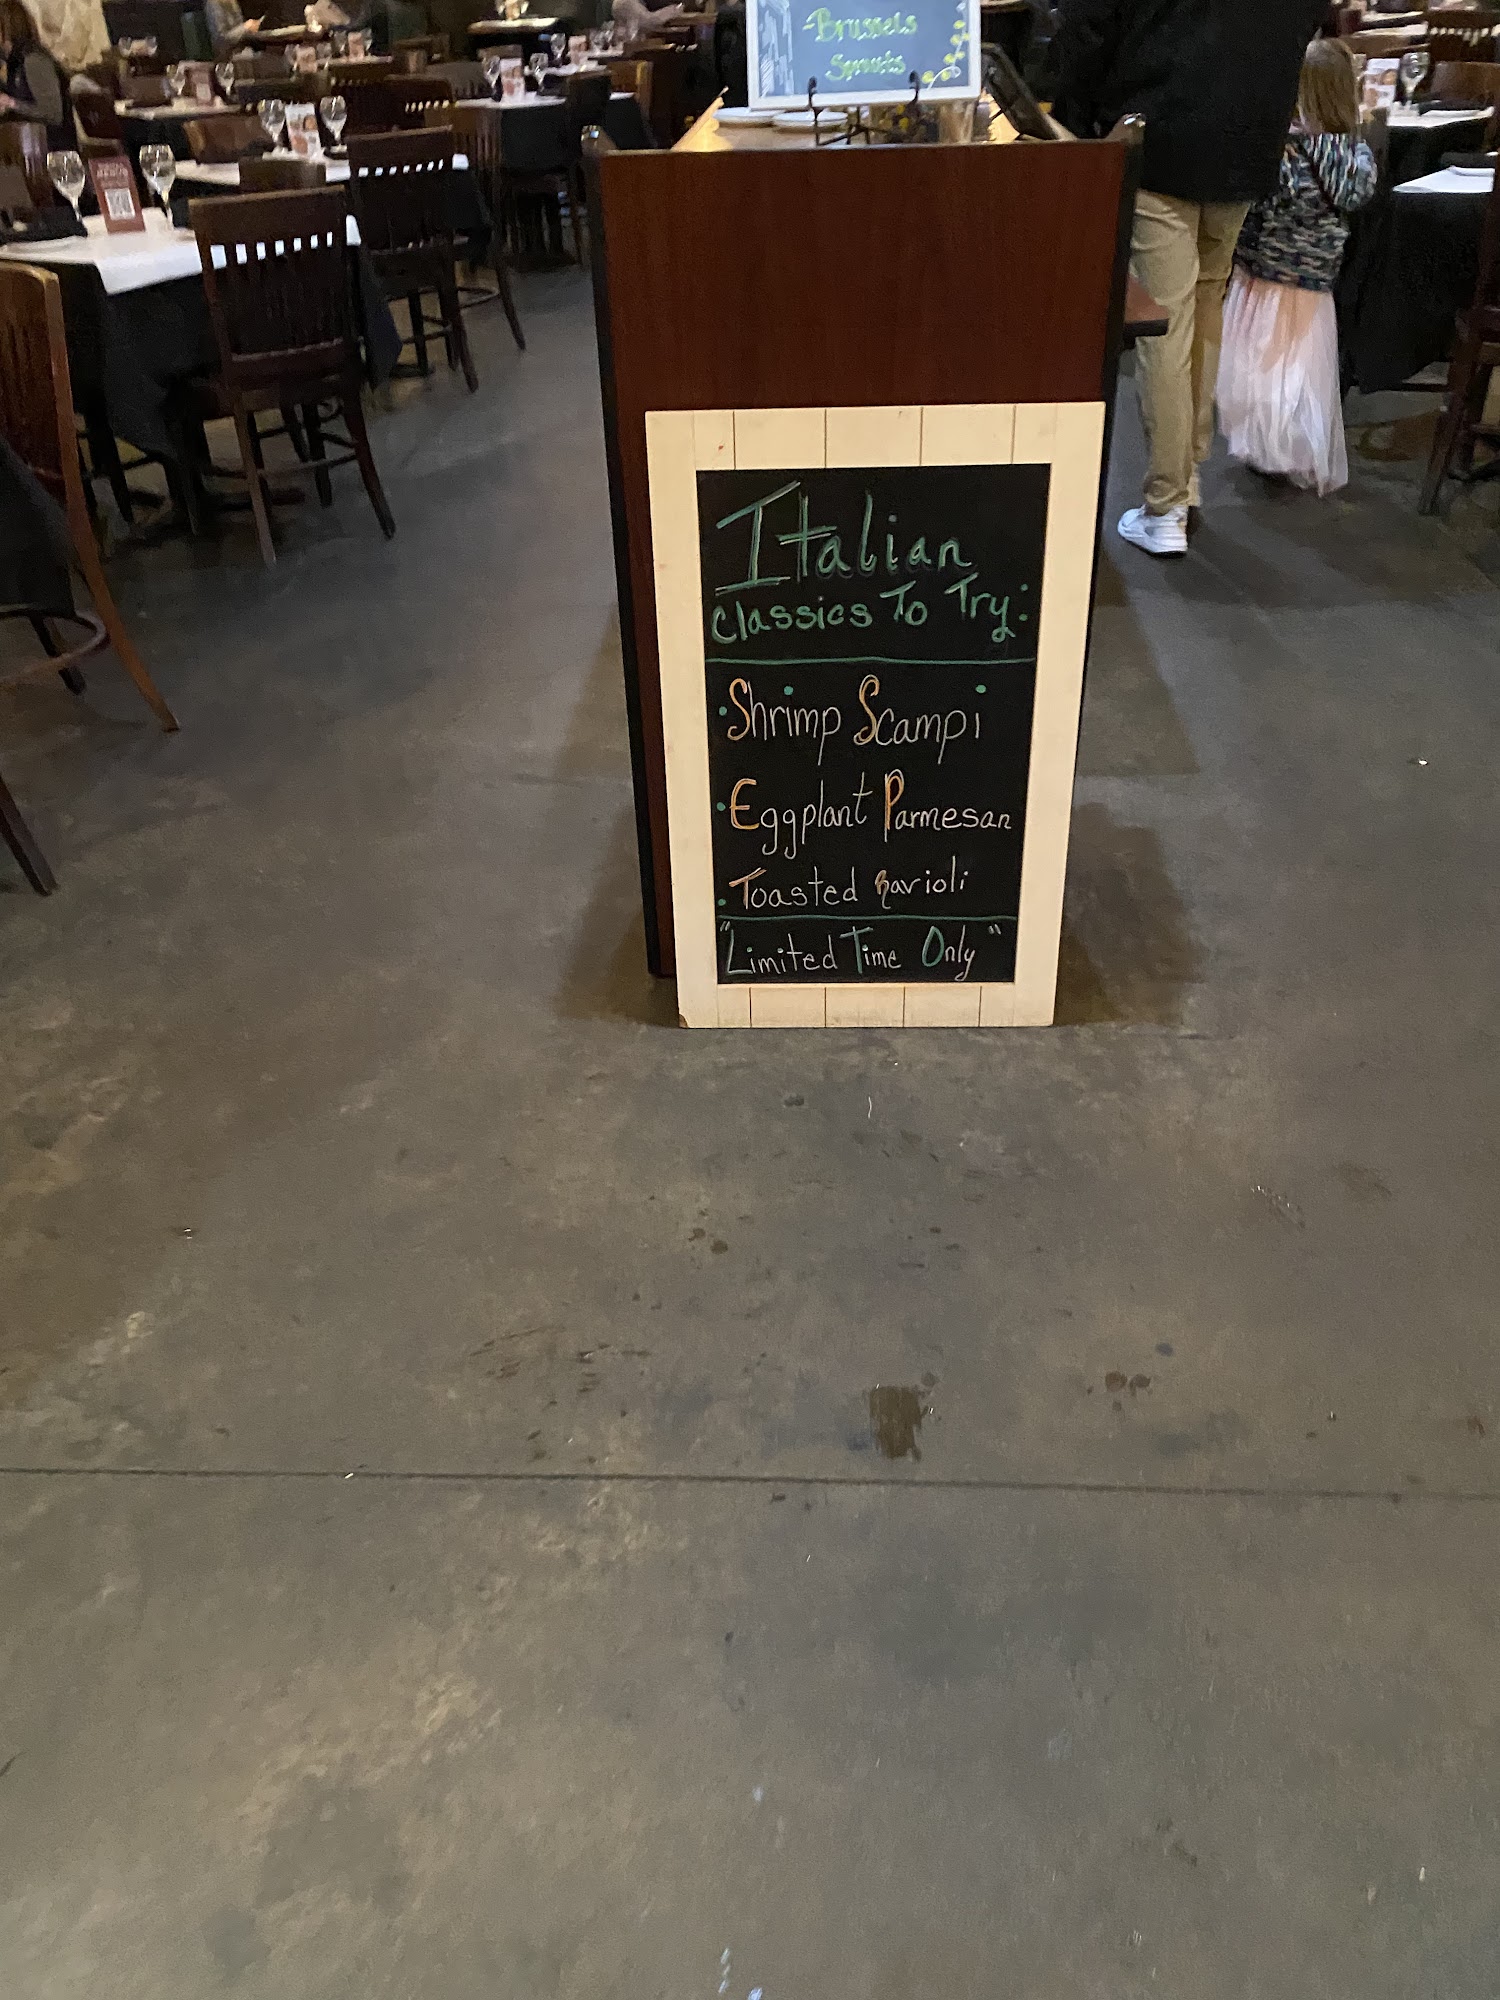 -Brussels
Sprouts
Italian
Classics To Try:
• Shrimp Scampi
• Eggplant Parmesan
• Toasted Ravioli
"Limited Time Only"